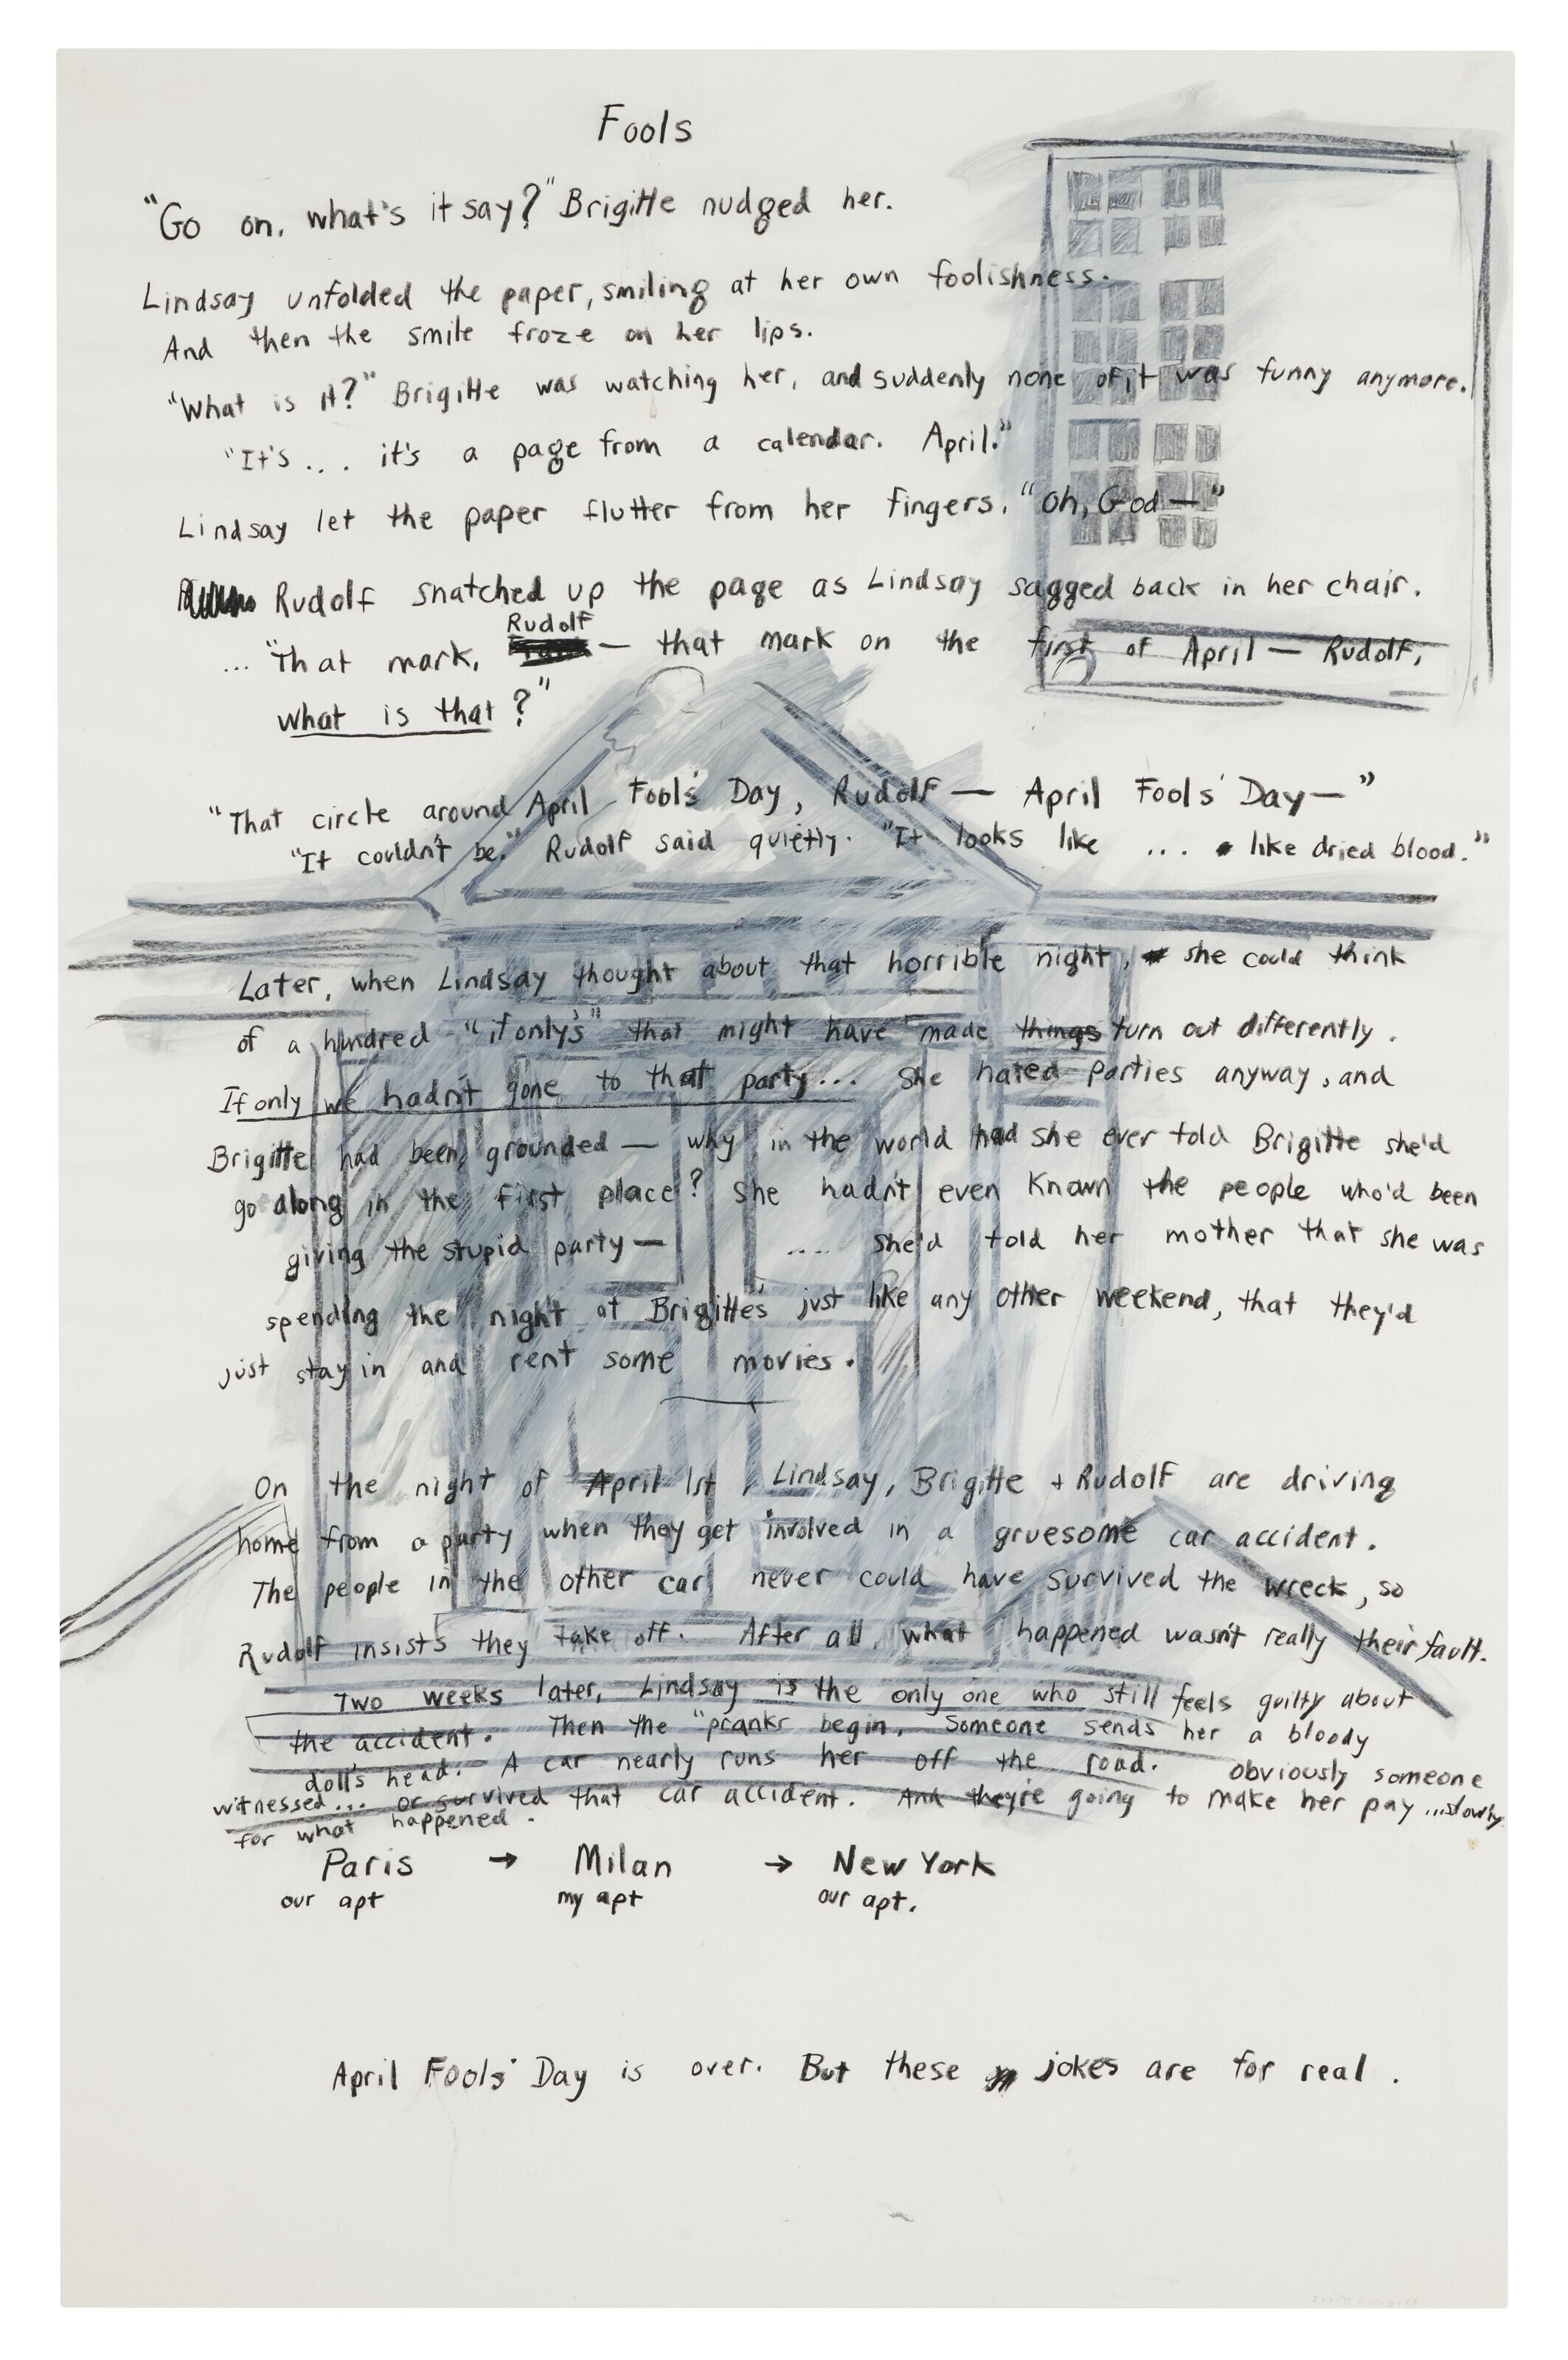 Fools
"Go on, what's it say?" Brigitte nudged her.
Lindsay unfolded the paper, smiling at her own foolishness.
And then the smile froze on her lips.
"What is it?" Brigitte was watching her, and suddenly none of it was funny anymore.
"It's ... it's a page from a calendar. April."
Lindsay let the paper flutter from her fingers. "Oh, God—"
Rudolf snatched up the page as Lindsay sagged back in her chair.
... "That mark, Rudolf — that mark on the first of April — Rudolf,
what is that?"
"That circle around April Fools' Day, Rudolf — April Fools' Day—"
"It couldn't be." Rudolf said quietly. "It looks like ... like dried blood."
Later, when Lindsay thought about that horrible night, she could think
of a hundred "if only's" that might have made things turn out differently.
If only we hadn't gone to that party... She hated parties anyway, and
Brigitte had been grounded — why in the world had she ever told Brigitte she'd
go along in the first place? She hadn't even known the people who'd been
giving the stupid party — .... she'd told her mother that she was
spending the night at Brigitte's just like any other weekend, that they'd
just stay in and rent some movies.
On the night of April 1st, Lindsay, Brigitte + Rudolf are driving
home from a party when they get involved in a gruesome car accident.
The people in the other car never could have survived the wreck, so
Rudolf insists they take off. After all, what happened wasn't really their fault.
Two weeks later, Lindsay is the only one who still feels guilty about
the accident. Then the "pranks begin. Someone sends her a bloody
doll's head. A car nearly runs her off the road. obviously someone
witnessed... or survived that car accident. And they're going to make her pay ...slowly
for what happened.
Paris → Milan → New York
our apt my apt our apt.
April Fools' Day is over. But these jokes are for real.